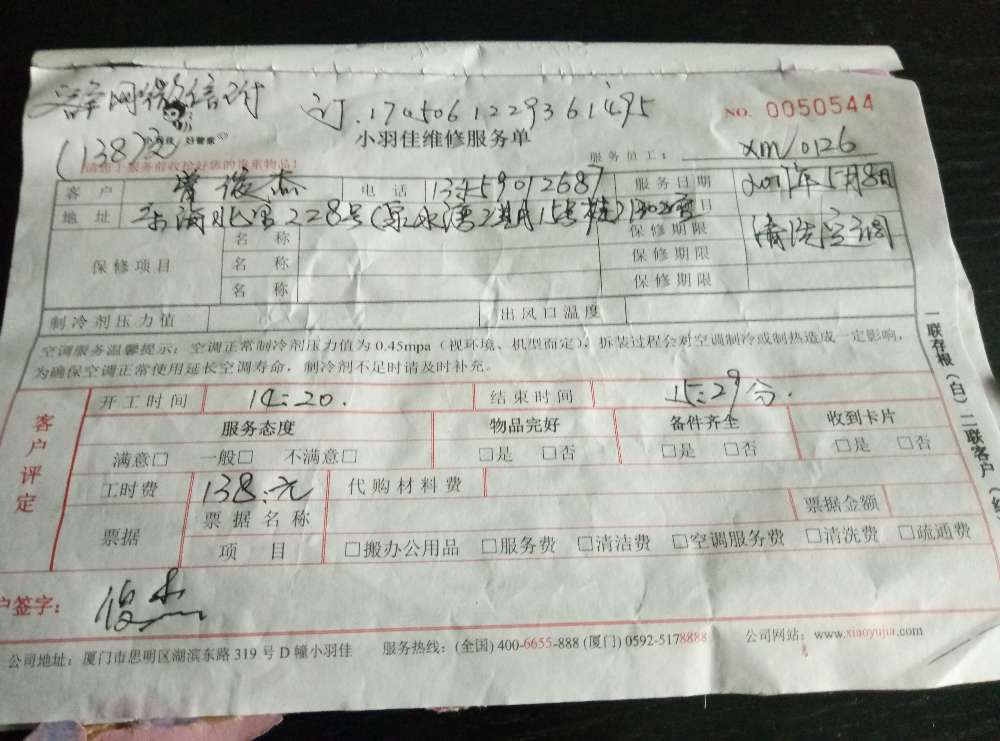 网微信付
订.1745061229361495
NO. 0050544
(138元)
好管家
小羽佳维修服务单
请您于服务前收拾好您的贵重物品！
服务员工： xm/0126
客 户 俊杰 电 话 13459012687 服务日期 5月8日
地 址 228号 日
保修项目 名 称 保修期限 清洗空调
名 称 保修期限
名 称 保修期限
制冷剂压力值 出风口温度
空调服务温馨提示：空调正常制冷剂压力值为0.45mpa（视环境、机型而定），拆装过程会对空调制冷或制热造成一定影响，
为确保空调正常使用延长空调寿命，制冷剂不足时请及时补充。
客户评定
开工时间 14:20. 结束时间 15:29分.
服务态度 物品完好 备件齐全 收到卡片
满意□ 一般□ 不满意□ □是 □否 □是 □否 □是 □否
工时费 138.元 代购材料费
票据 票据名称 票据金额
项 目 □搬办公用品 □服务费 □清洁费 □空调服务费 □清洗费 □疏通费
户签字： 俊杰
公司地址：厦门市思明区湖滨东路319号D幢小羽佳 服务热线：(全国) 400-6655-888 (厦门) 0592-5178888 公司网站：www.xiaoyujia.com
一联存根（白）二联客户（红